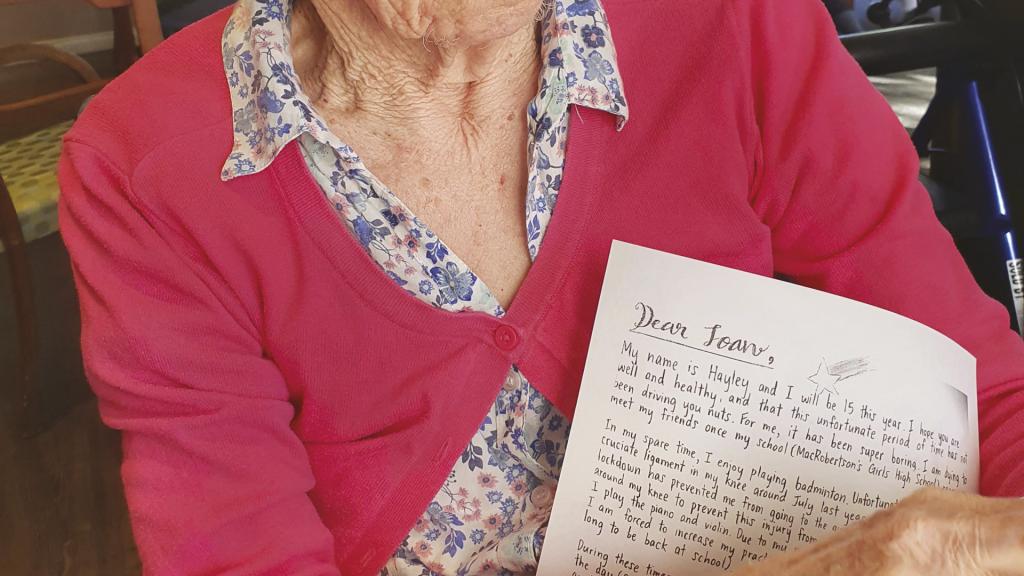 Dear Joan,
My name is Hayley and I will be 15 this year. I hope you are
well and healthy, and that this unfortunate period of time has not
been driving you nuts. For me, it has been super boring. I am dying to
meet my friends once my school (MacRobertson's Girls High School)
In my spare time, I enjoy playing badminton.
cruciate ligament in my knee around July last year
lockdown has prevented me from going to the
around my knee to prevent this injury from
I play the piano and violin. Due to my
I am forced to increase my
long to be back at school)
During these
the day